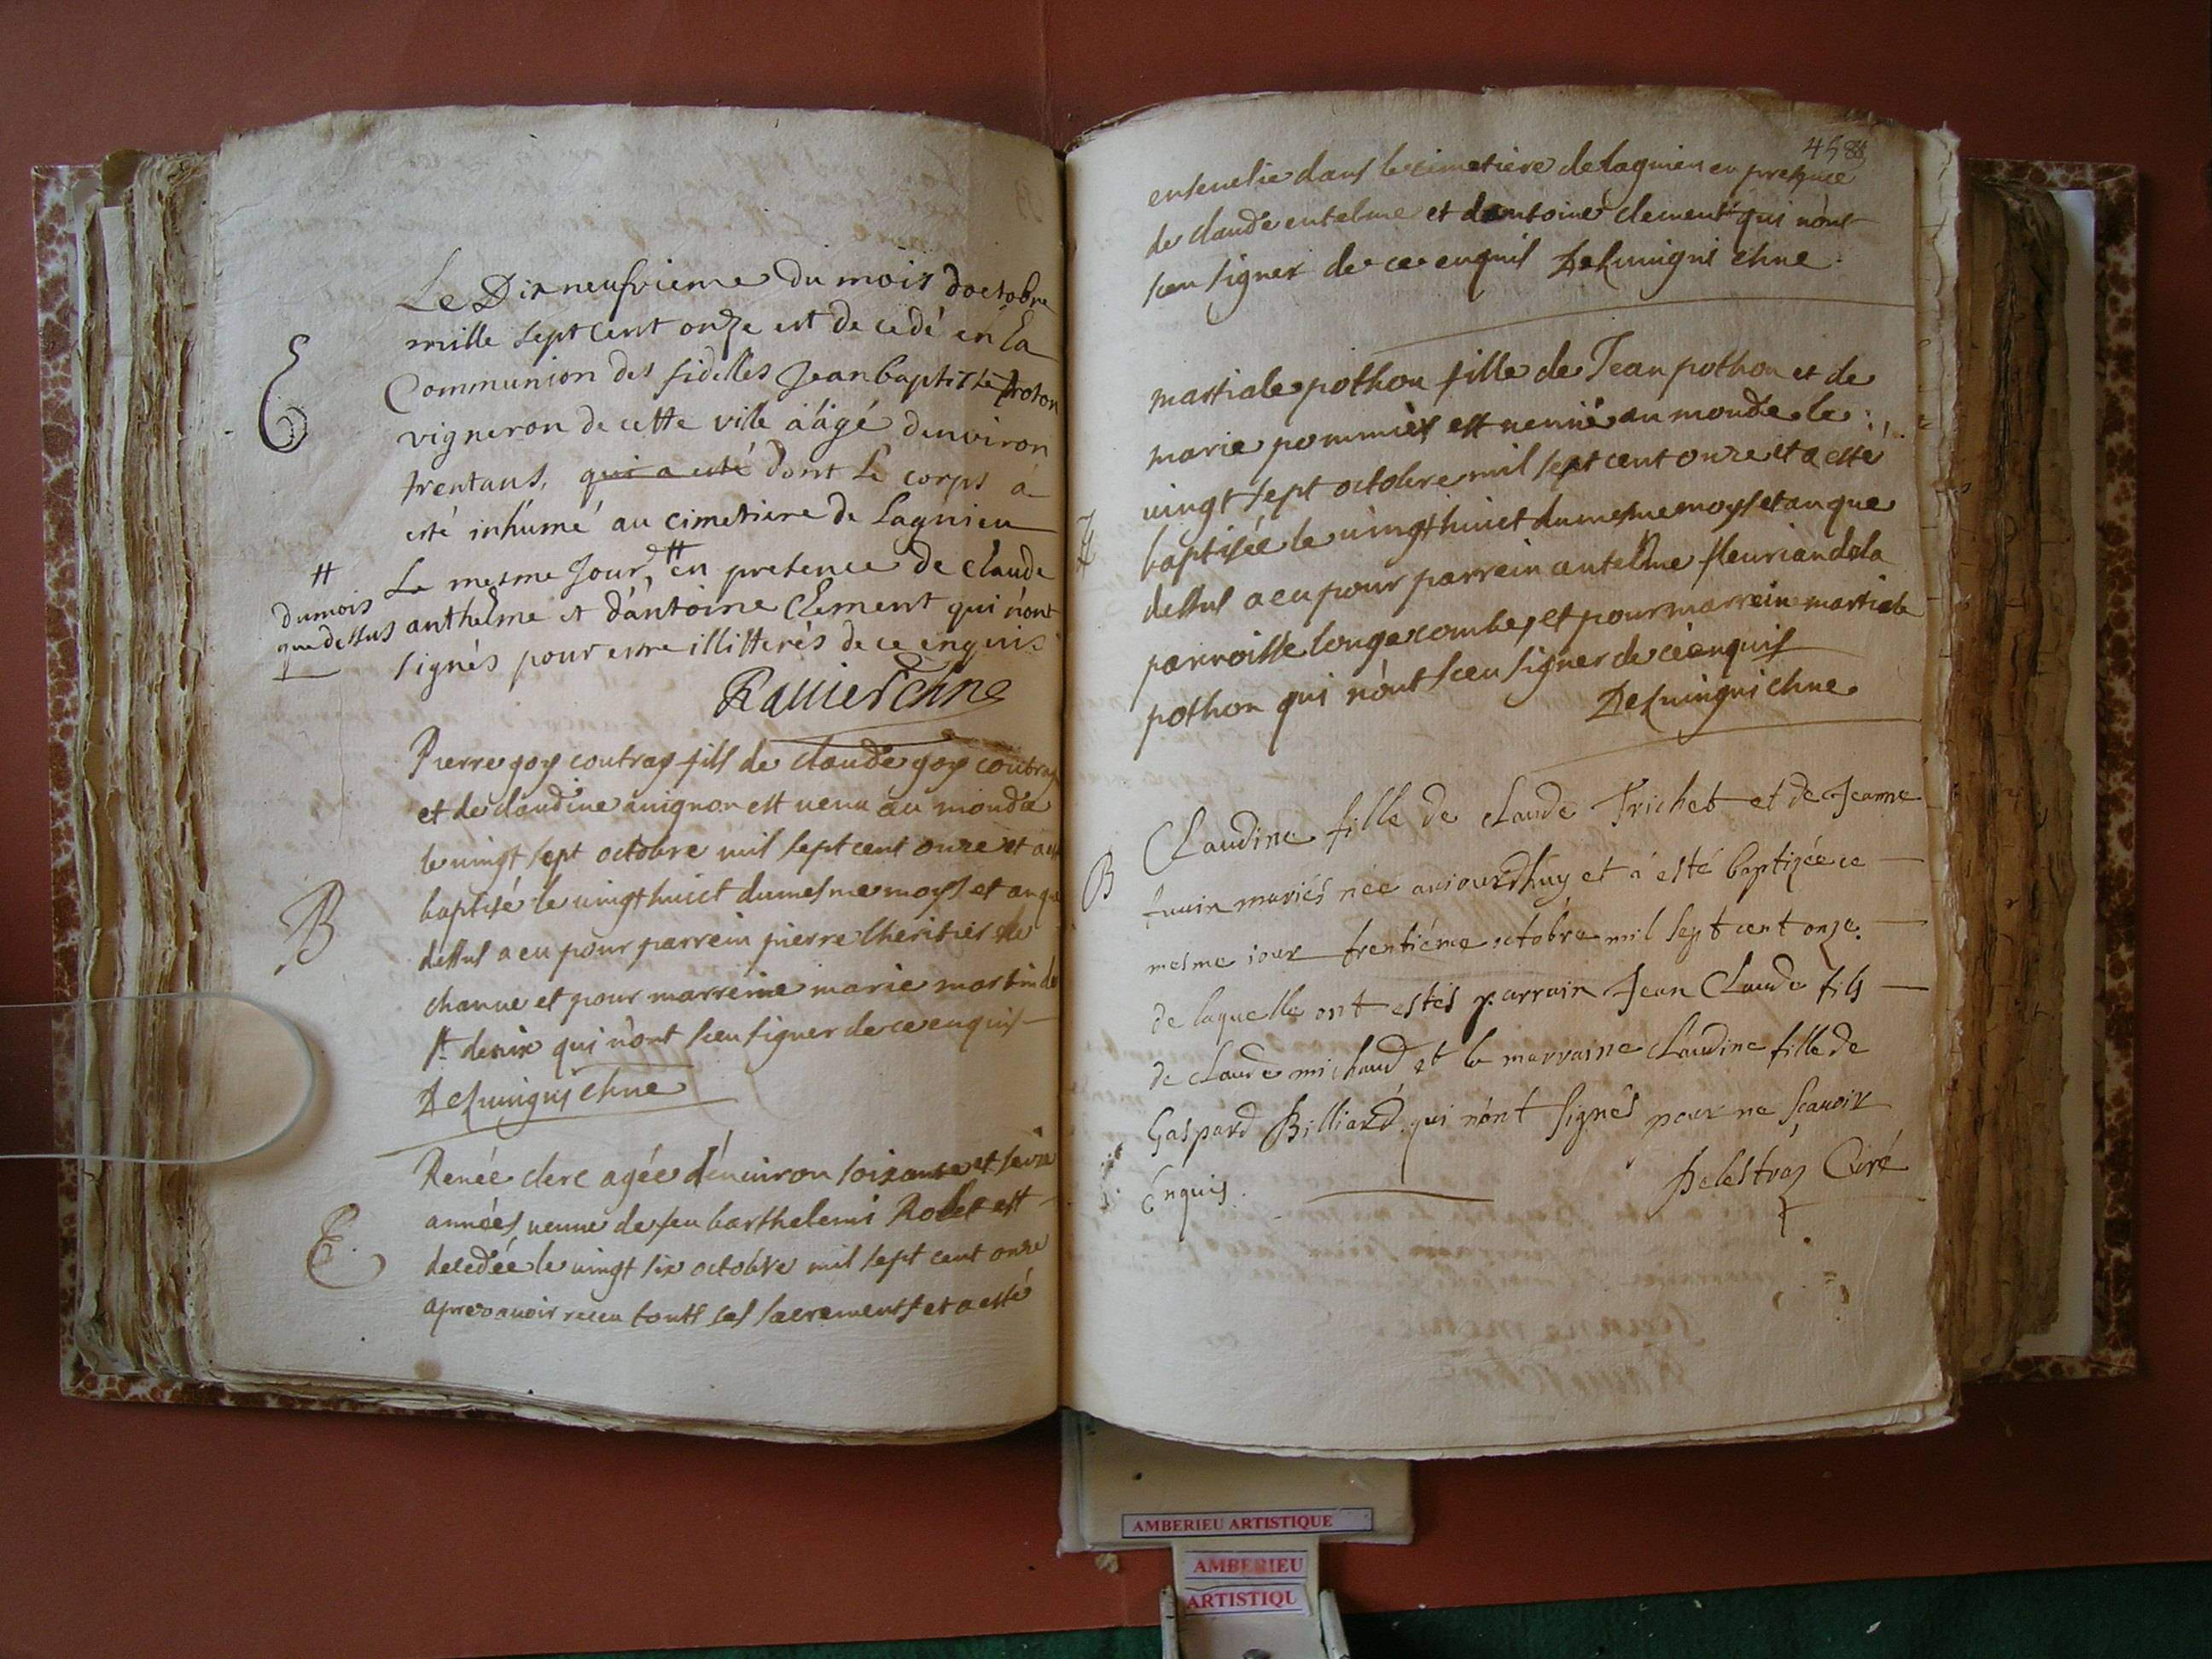 Le Dixneufvieme du mois d'octobre
mille sept cent onze est decedé en la
Communion des fidelles Jean baptiste proton
vigneron de cette ville aâgé denviron
trentans, qui a esté dont le corps à
esté inhumé au cimetiere de Lagnieu
Le mesme Jour, # en presence de claude
# du mois
que dessus
anthelme et d'antoine Clement qui n'ont
signés pour estre illitterés de ce enquis
Ravier chne
E
Pierre goy coutray fils de claude goy coutray
et de claudine avignon est venu au monde
le vingt sept octobre mil sept cent onze et a esté
baptisé le vingthuict du mesme moys et an que
dessus a eu pour parrein pierre lheritier de
chanue et pour marreine marie martin de
st denix qui n'ont sceu signer de ce enquis
B
Renée clerc agée d'environ soixante et seize
années veuve de feu barthelemi Rolet est
decedée le vingt six octobre mil sept cent onze
apres avoir receu touts ses sacrements et a esté
E
458
ensevelie dans le cimetiere de lagnieu en presence
de claude entelme et dantoine clement qui n'ont
sceu signer de ce enquis
martiale pothon fille de Jean pothon et de
marie pommier est venüe au monde le
vingt sept octobre mil sept cent onze et a esté
baptisée le vingthuict du mesme moys et an que
dessus a eu pour parrein antelme fleuriand de la
parroisse longecombe, et pour marreine martiale
pothon qui n'ont sceu signer de ce enquis
B
Claudine fille de claude Trichet et de Jeanne
mariés née auiourdhuy et à esté baptizée ce
mesme iour trentiéme octobre mil sept cent onze.
de laquelle ont estés parrain Jean Claude fils
de claude michaud et la marraine claudine fille de
Gaspard Billiard qui n'ont signés pour ne scavoir
Enquis.
Delestraz Curé
AMBERIEU ARTISTIQUE
AMBERIEU
ARTISTIQU